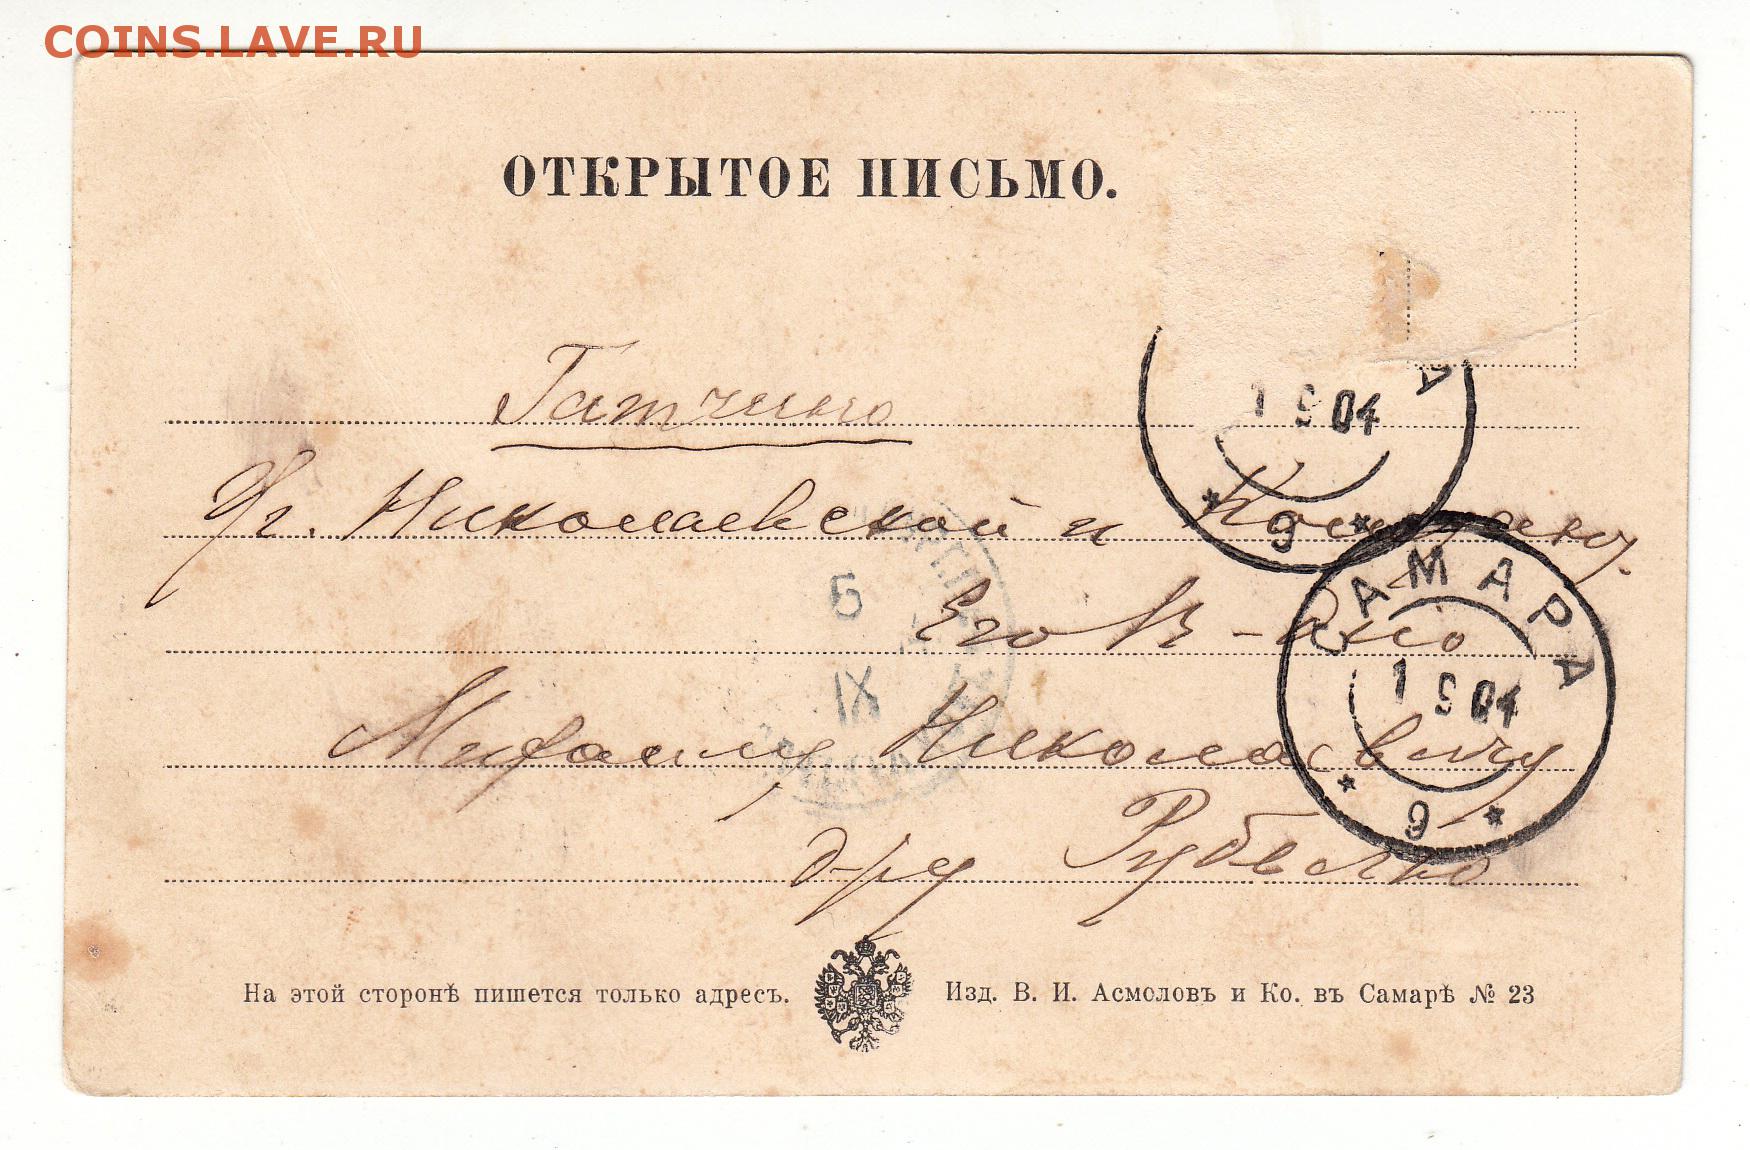 COINS.LAVE.RU
ОТКРЫТОЕ ПИСЬМО.
Гатчино
Уг. Николаевской и
Его В-дию
Михаилу Николаевичу
д-ру Рубель
А
1 9 04
9
САМАРА
1 9 04
9
5
IX
ГАТЧИНА
На этой сторонѣ пишется только адресъ.
Изд. В. И. Асмоловъ и Ко. въ Самарѣ № 23